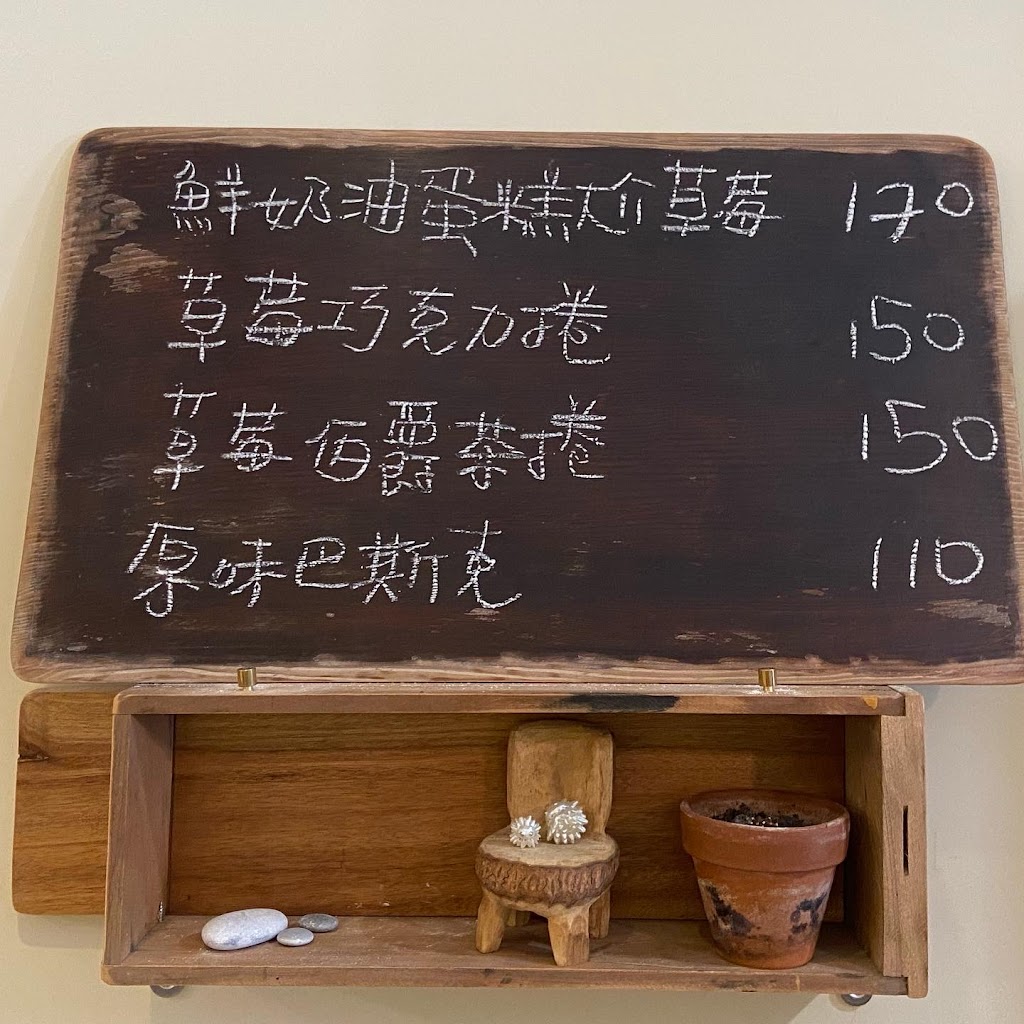 鮮奶油蛋糕尬草莓 170
草莓巧克力捲 150
草莓伯爵茶捲 150
原味巴斯克 110